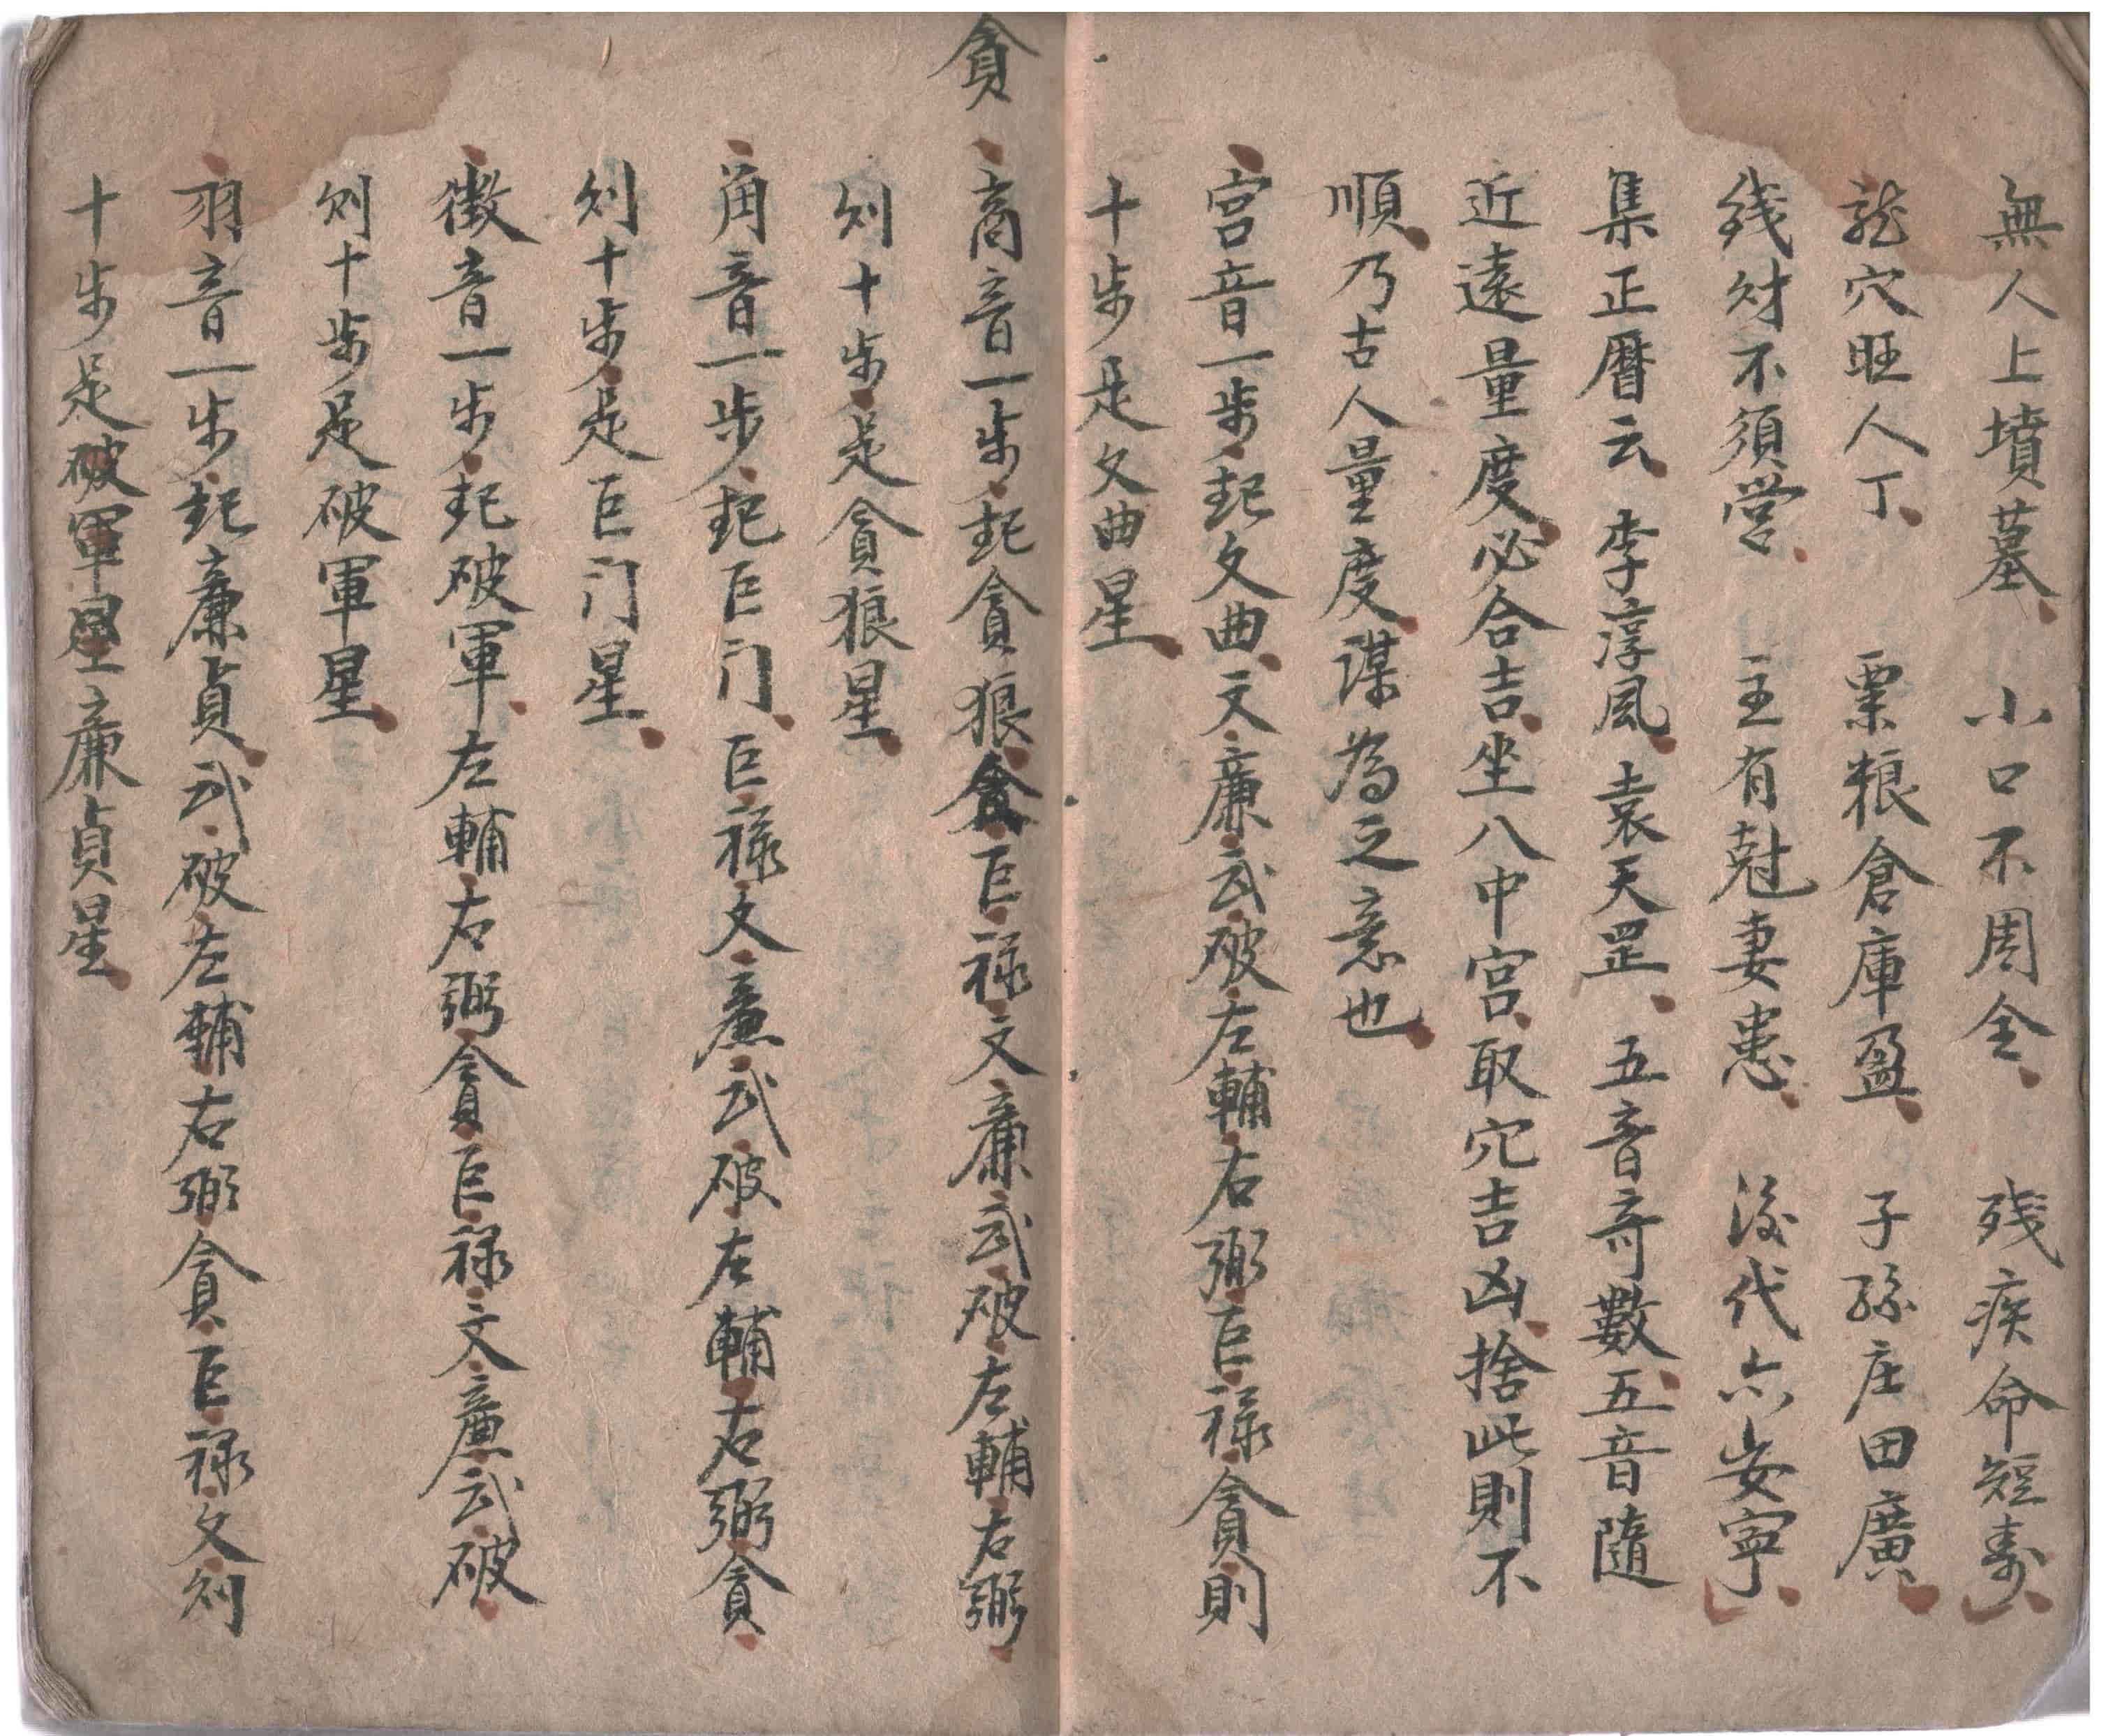 無人上墳墓、小口不周全、残疾命短寿、
龍穴旺人丁、粟粮倉庫盈、子孫庄田廣、
錢財不須営、主有尅妻患、後代六安寧、
集正曆云、李淳風、袁天罡、五音奇數五音隨
近遠量度必合吉坐八中宮、取穴吉凶、捨此則不
順、乃古人量度、謀為之意也、
宮音一步起文曲、文廉武破左輔右弼巨禄貪則
十步是文曲星、
貪
商音一步起貪狼貪巨禄文廉武破左輔右弼
则十步是貪狼星、
角音一步起巨门、巨禄文廉武破左輔右弼貪
则十步是巨门星、
徵音一步起破軍、左輔右弼貪巨禄文廉武破
则十步是破軍星、
羽音一步起廉貞、武破左輔右弼貪巨禄文则
十步是破軍星廉貞星、